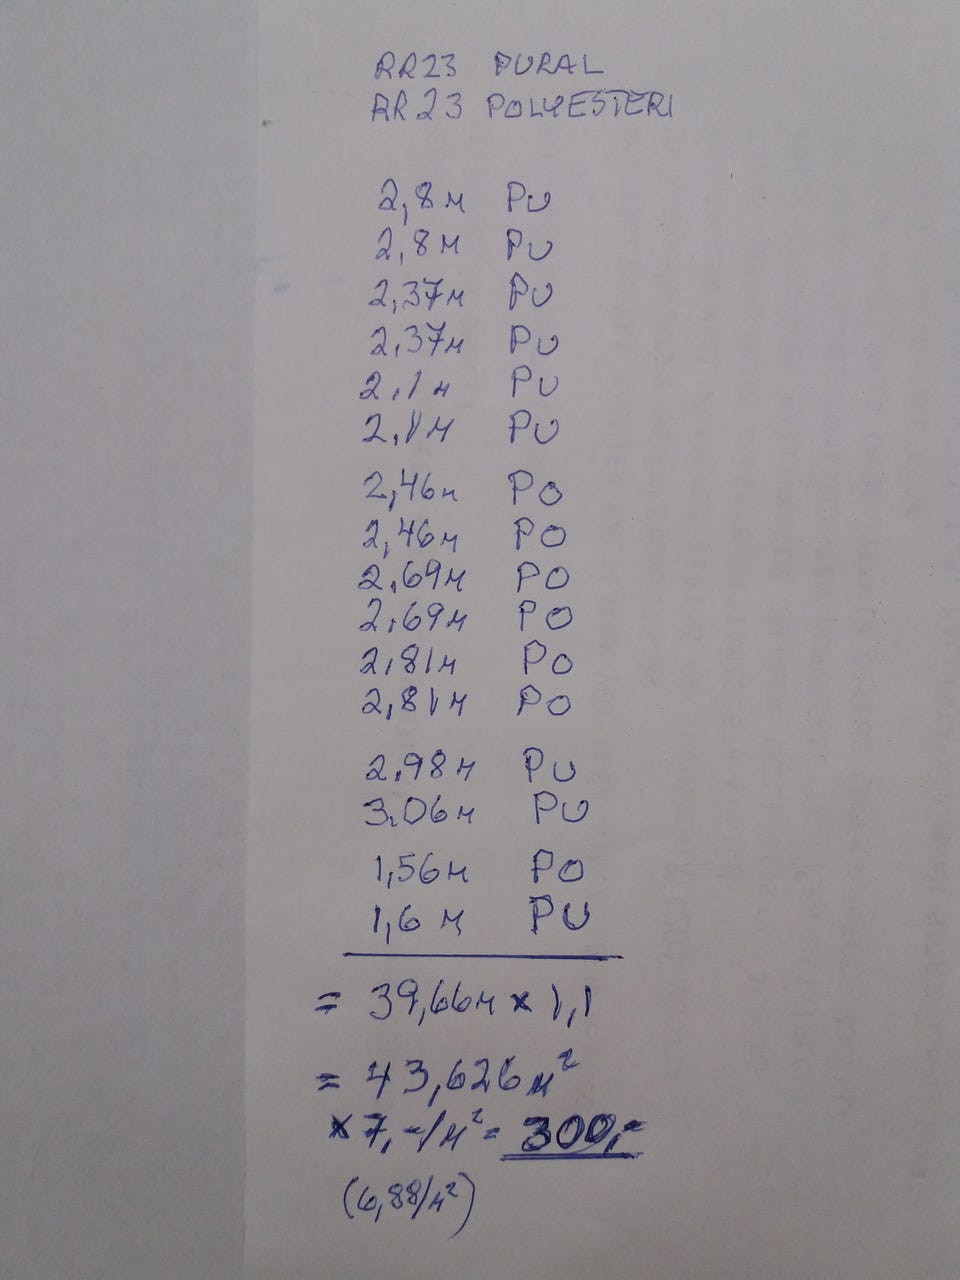 RR23 PURAL
RR23 POLYESTERI
2,8M PU
2,8M PU
2,37M PU
2,37M PU
2,1M PU
2,1M PU
2,46M PO
2,46M PO
2,69M PO
2,69M PO
2,81M PO
2,81M PO
2,98M PU
3,06M PU
1,56M PO
1,6M PU
= 39,66M × 1,1
= 43,626M²
× 7,-/M² = 300,-
(6,88/M²)